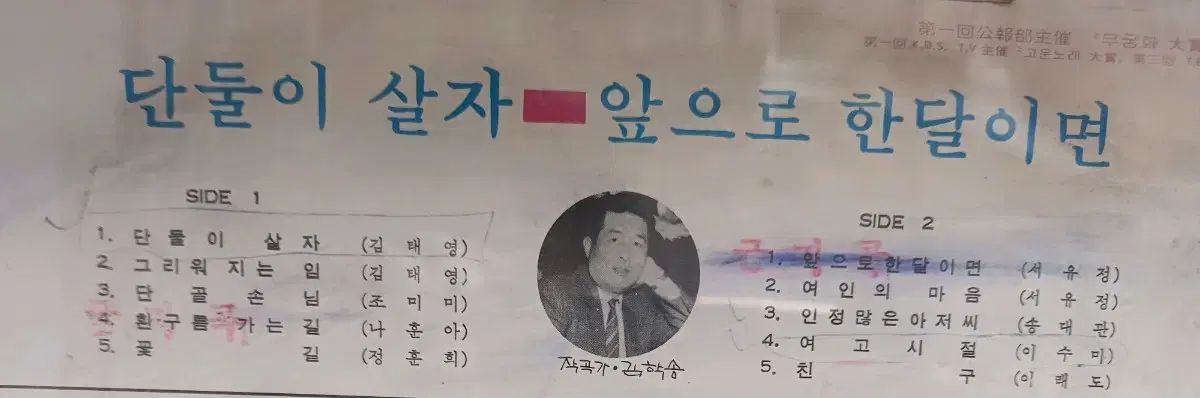 第一回公報部主催 "무궁화 大賞
第一回 K.B.S. T.V 主催 "고운노래 大賞, 第三回
단둘이 살자 앞으로 한달이면
SIDE 1
1. 단 둘 이 살 자 (김 태 영)
2. 그리워지는 임 (김 태 영)
3. 단 골 손 님 (조 미 미)
4. 흰구름 가는길 (나 훈 아)
5. 꽃 길 (정 훈 희)
작곡가·김학송
SIDE 2
1. 앞으로한달이면 (서 유 정)
2. 여 인 의 마 음 (서 유 정)
3. 인정많은아저씨 (송 대 관)
4. 여 고 시 절 (이 수 미)
5. 친 구 (이 래 도)